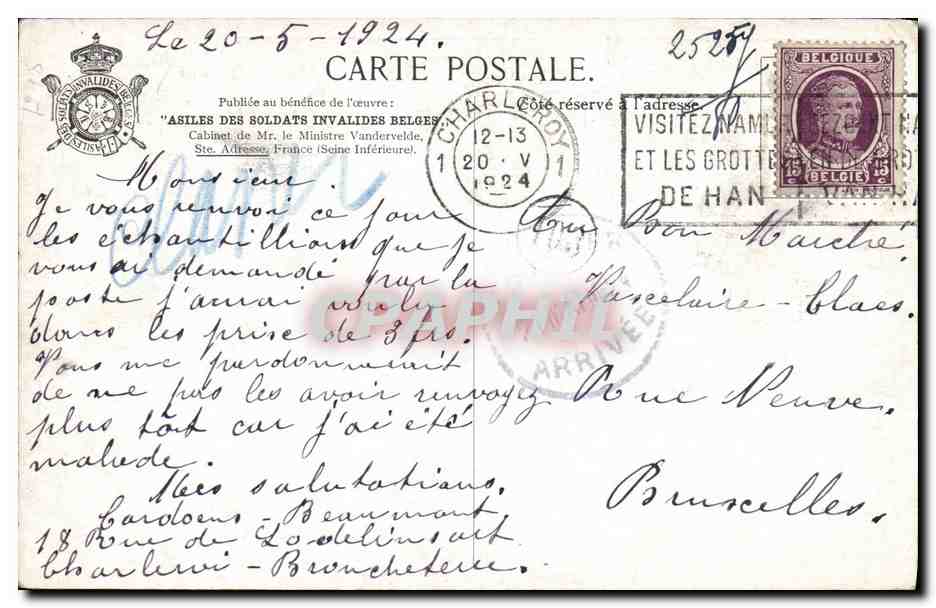 Le 20-5-1924.
25254
CARTE POSTALE.
Publiée au bénéfice de l'œuvre :
"ASILES DES SOLDATS INVALIDES BELGES
Cabinet de Mr. le Ministre Vandervelde,
Ste. Adresse, France (Seine Inférieure).
Côté réservé à l'adresse.
CHARLEROY
12-13
1 20 V 1
1924
VISITEZ NAM
ET LES GROTTE
DE HAN
BELGIQUE
15 15
BELGIE
ARRIVÉE
CPAPHIL
Monsieur.
Je vous renvoi ce jour
les échantillions que je
vous ai demandé par la
poste j'aurai voulu
dans les prise de 3 frs.
Vous me pardonnerait
de ne pas les avoir renvoyez
plus tôt car j'ai été
malade.
Mes salutations.
Cardoens - Beaumont.
18 Rue de Lodelinsart
Charleroi - Broucheterre.
Au Bon Marché
Vaxelaire - Claes
Rue Neuve.
Bruxcelles.